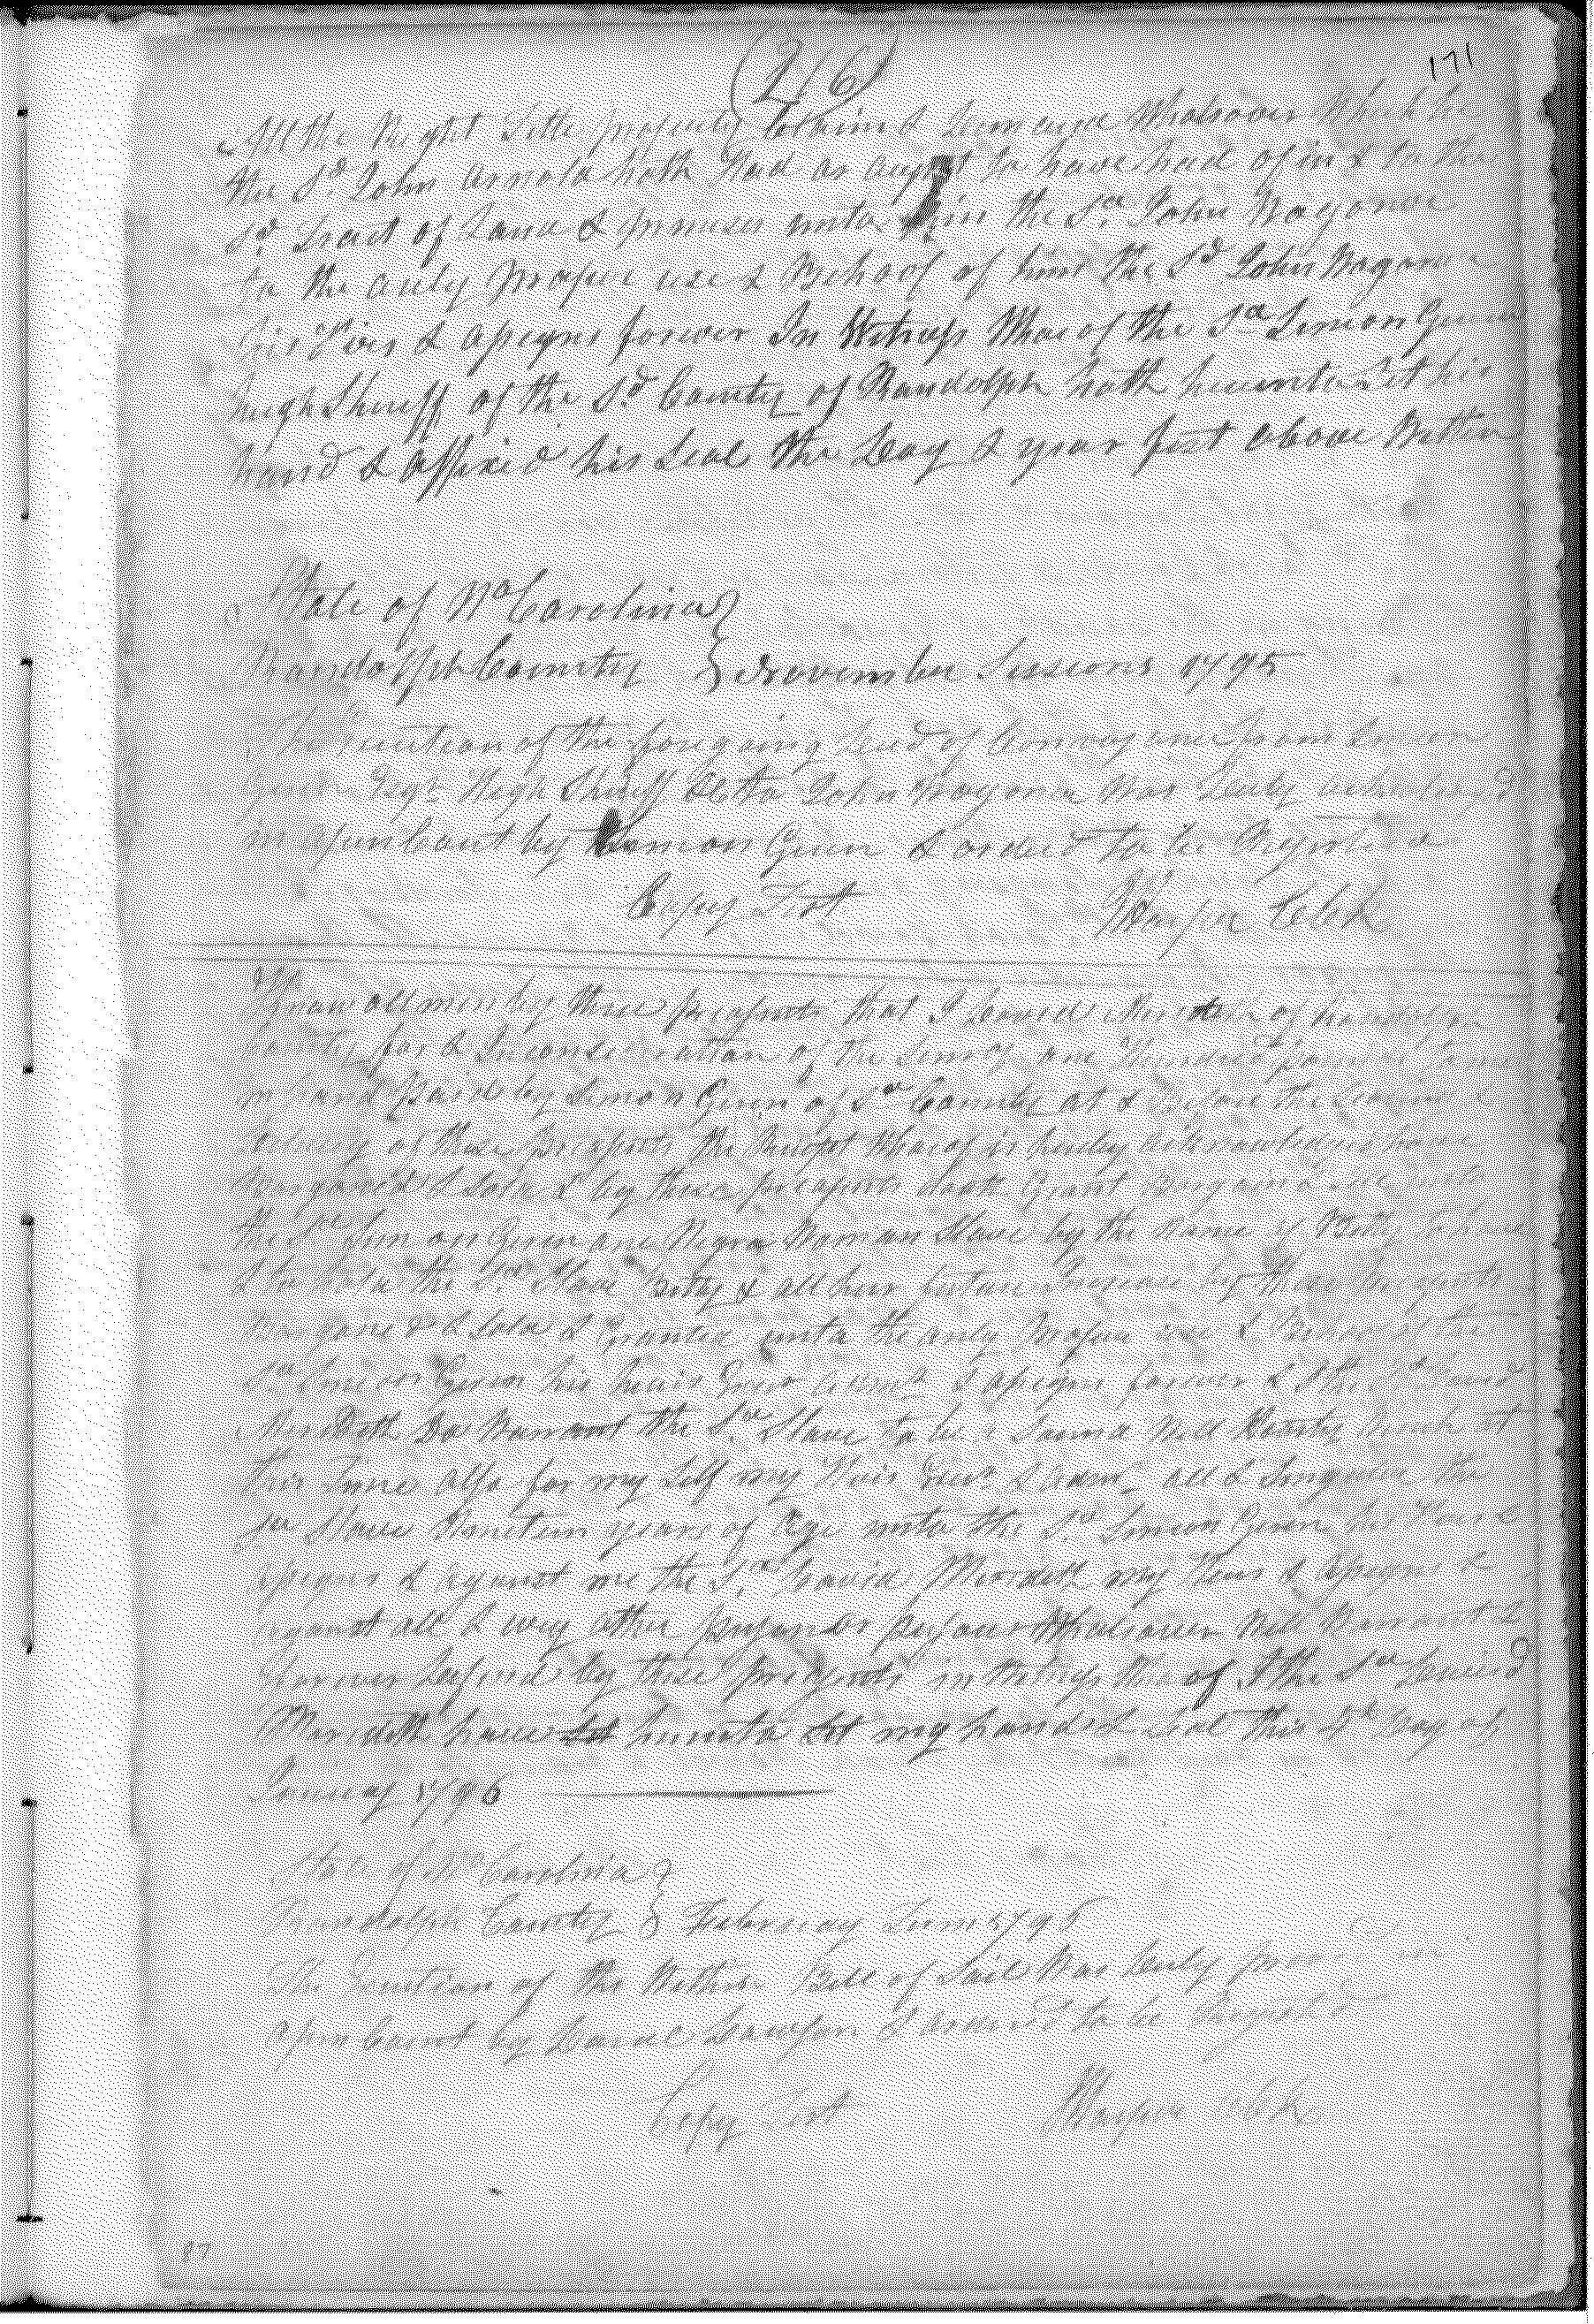 (216)
171
All the Right Title property Claim & Demand Whatsoever Which he
the Sd. John Arnold hath Had or aught to have had of in & to the
Sd. Tract of Land & premises unto him the Sd John Wagoner
to the only proper use & Behoof of him the Sd John Wagoner
his Heirs & assigns forever In Witness Whereof the Sd Simon Geren
high Sheriff of the Sd. County of Randolph hath hereunto Set his
hand & affixed his Seal the Day & year first above Written
State of No Carolina }
Randolph County } November Sessions 1795
The Execution of the foregoing Deed of Conveyance from Simon
Geren Esqr. High Sheriff &c to John Wagoner was Duly acknowledged
in open Court by Simon Geren & ordered to be Registered
Copy Test Harper Clk
Know all men by these presents that I David Merideth of Randolph
County for & In consideration of the Sum of one Hundred pounds
in hand Paid by Simon Geren of Sd County at & Before the Sealing &
Delivery of these presents the Receipt Whereof is hereby acknowledged have
Bargained & Sold & by these presents doth Grant Bargain & Sell unto
the Sd Simon Geren one Negro Woman Slave by the Name of Betty To have
& to hold the Sd. Slave Betty & all her future Increase by these presents
Bargained & Sold & Granted unto the only Proper use & Behoof of the
Sd Simon Geren his heirs Exrs Admrs & assigns forever & I the Sd David
Merideth Do Warrant the Sd. Slave to be Sound Well Healthy at
this Time also for my Self my Heirs Exrs. & Admrs all & Singular the
Sd Slave Nineteen years of Age unto the Sd Simon Geren his Heirs &
assigns & against me the Sd. David Merideth my Heirs & assigns &
against all & every other person or persons Whatsoever Will Warrant &
forever Defend by these presents in Witness Whereof I the Sd David
Merideth have Set hereunto Set my hand & Seal this Day of
January 1796
State of No Carolina }
Randolph County } February Term 1796
The Execution of the Within Bill of Sail Was Duly proven in
open Court by Dawson & ordered to be Registerd
Copy Test Harper Clk
87